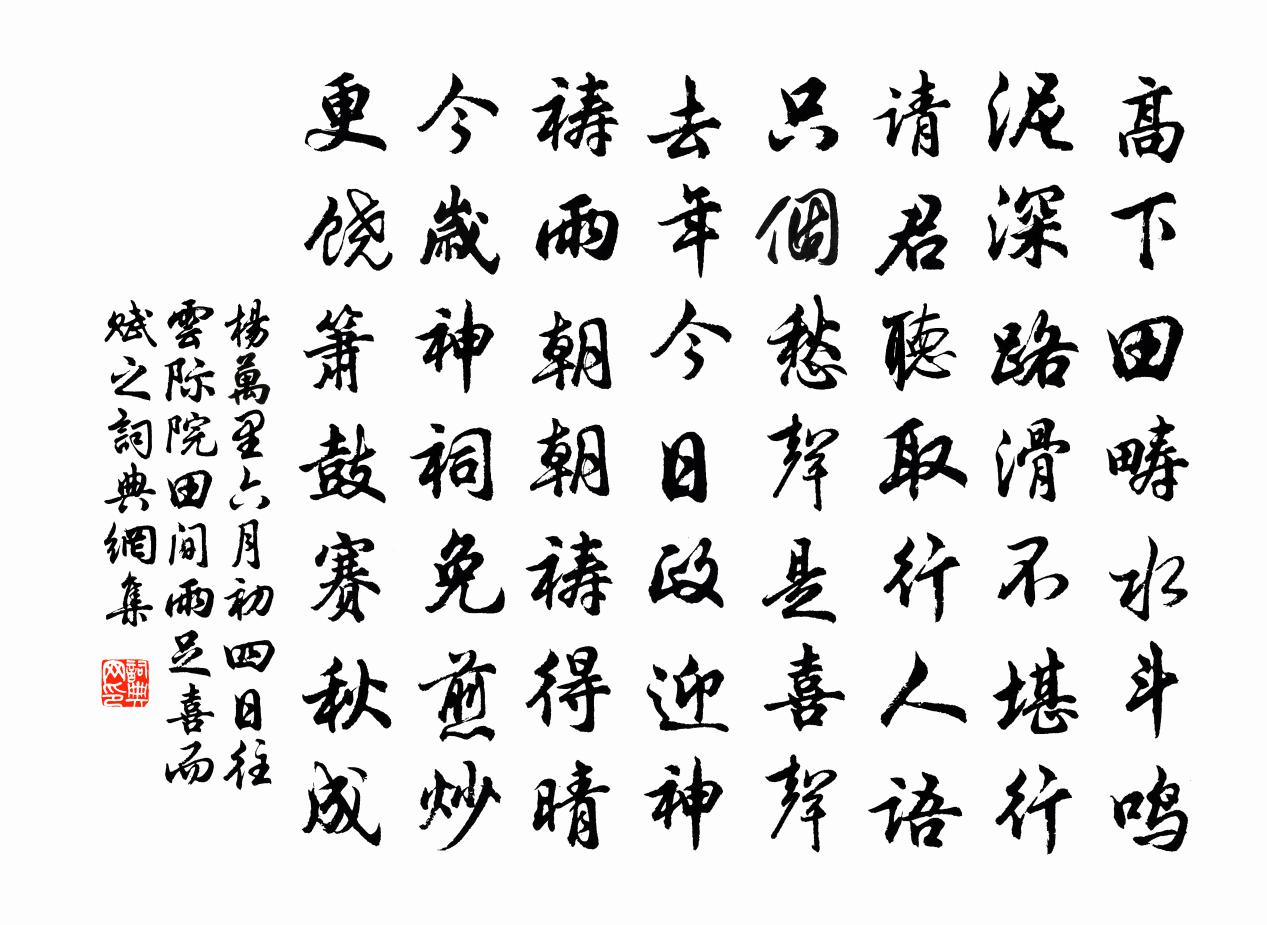 高下田畴水斗鸣
泥深路滑不堪行
请君聽取行人语
只個愁聲是喜聲
去年今日政迎神
祷雨朝朝祷得晴
今歲神祠免煎炒
更饶箫鼓赛秋成
楊萬里六月初四日往
雲际院田间雨足喜而
赋之詞典網集
詞典网印